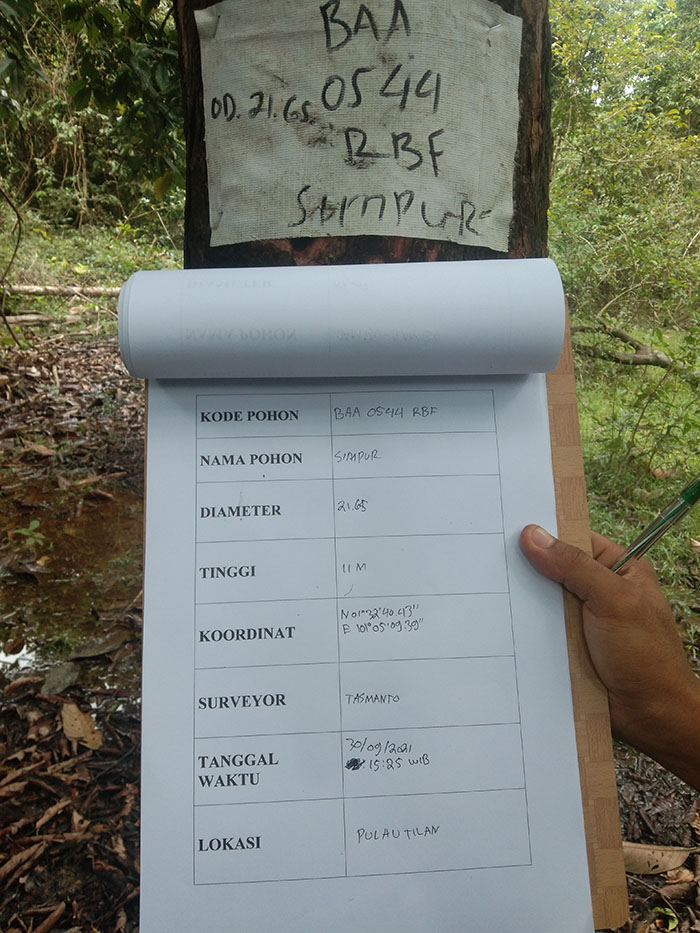 BAA
OD. 21.65. 0544
RBF
SIMPUR
KODE POHON BAA 0544 RBF
NAMA POHON SIMPUR
DIAMETER 21.65
TINGGI 11 M
KOORDINAT N 01°32'40.43"
E 101°05'09.39"
SURVEYOR TASMANTO
TANGGAL 30/09/2021
WAKTU 15:25 WIB
LOKASI PULAU TILAN